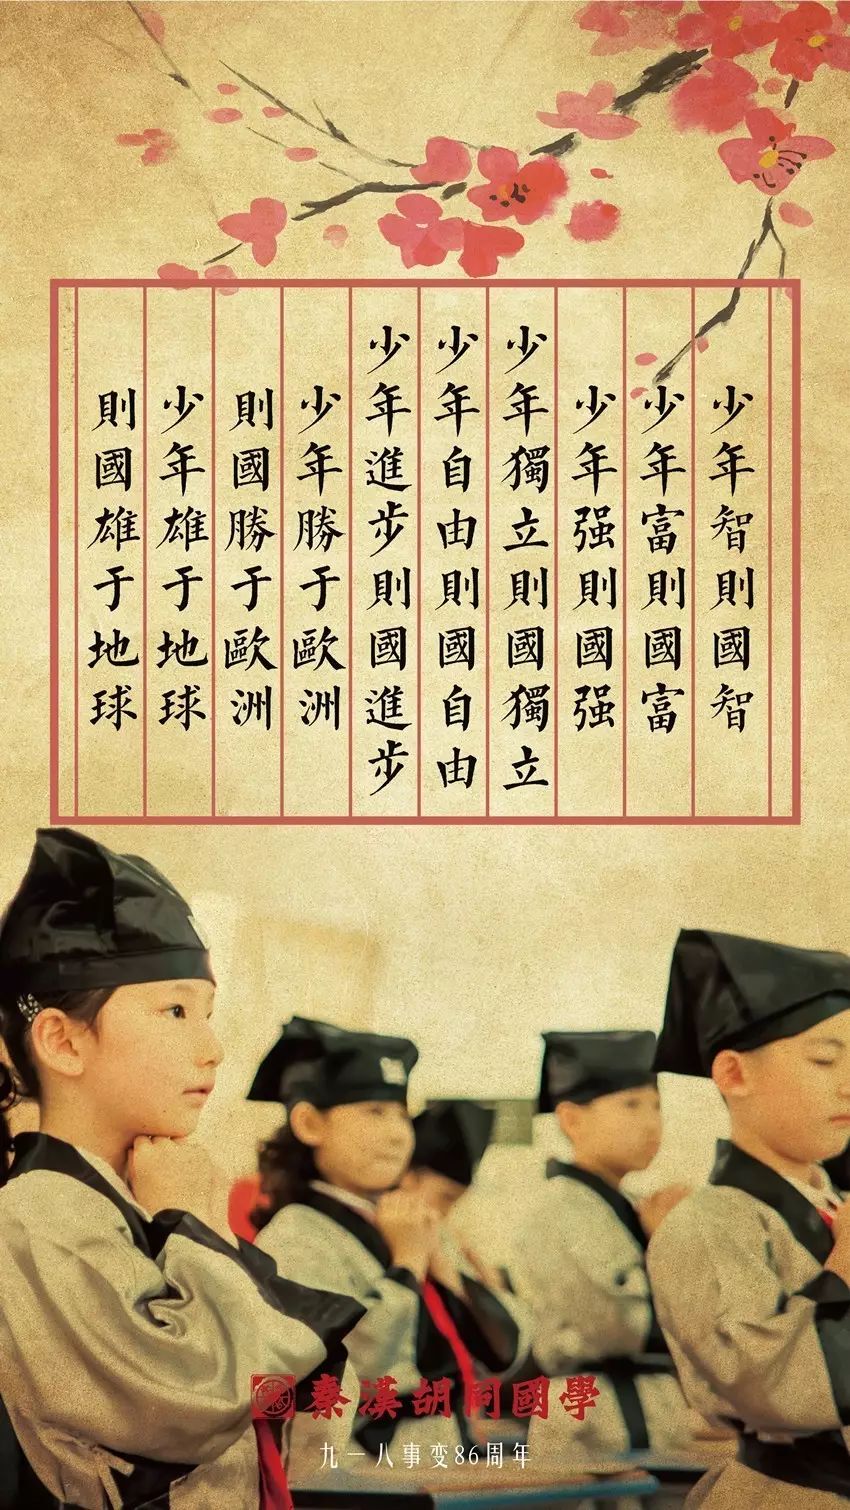 少年智則國智
少年富則國富
少年强則國强
少年獨立則國獨立
少年自由則國自由
少年進步則國進步
少年勝于歐洲
則國勝于歐洲
少年雄于地球
則國雄于地球
秦漢胡同國學
九一八事变86周年